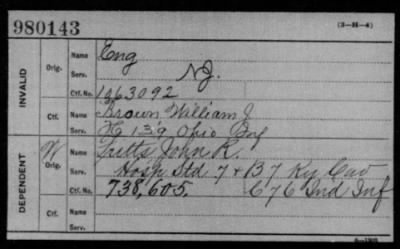 980143 (3-H-4)
INVALID
Orig.
Name Eng
Serv. N.J.
Ctf. No. 1063092
Ctf.
Name Brown, William J.
Serv. K 139 Ohio Inf
DEPENDENT
W Orig.
Name Fritts, John R.
Serv. Hosp Std 7 & B 7 Ky Cav
Ctf. No. 738,605. 676 Ind Inf
Ctf.
Name
Serv.